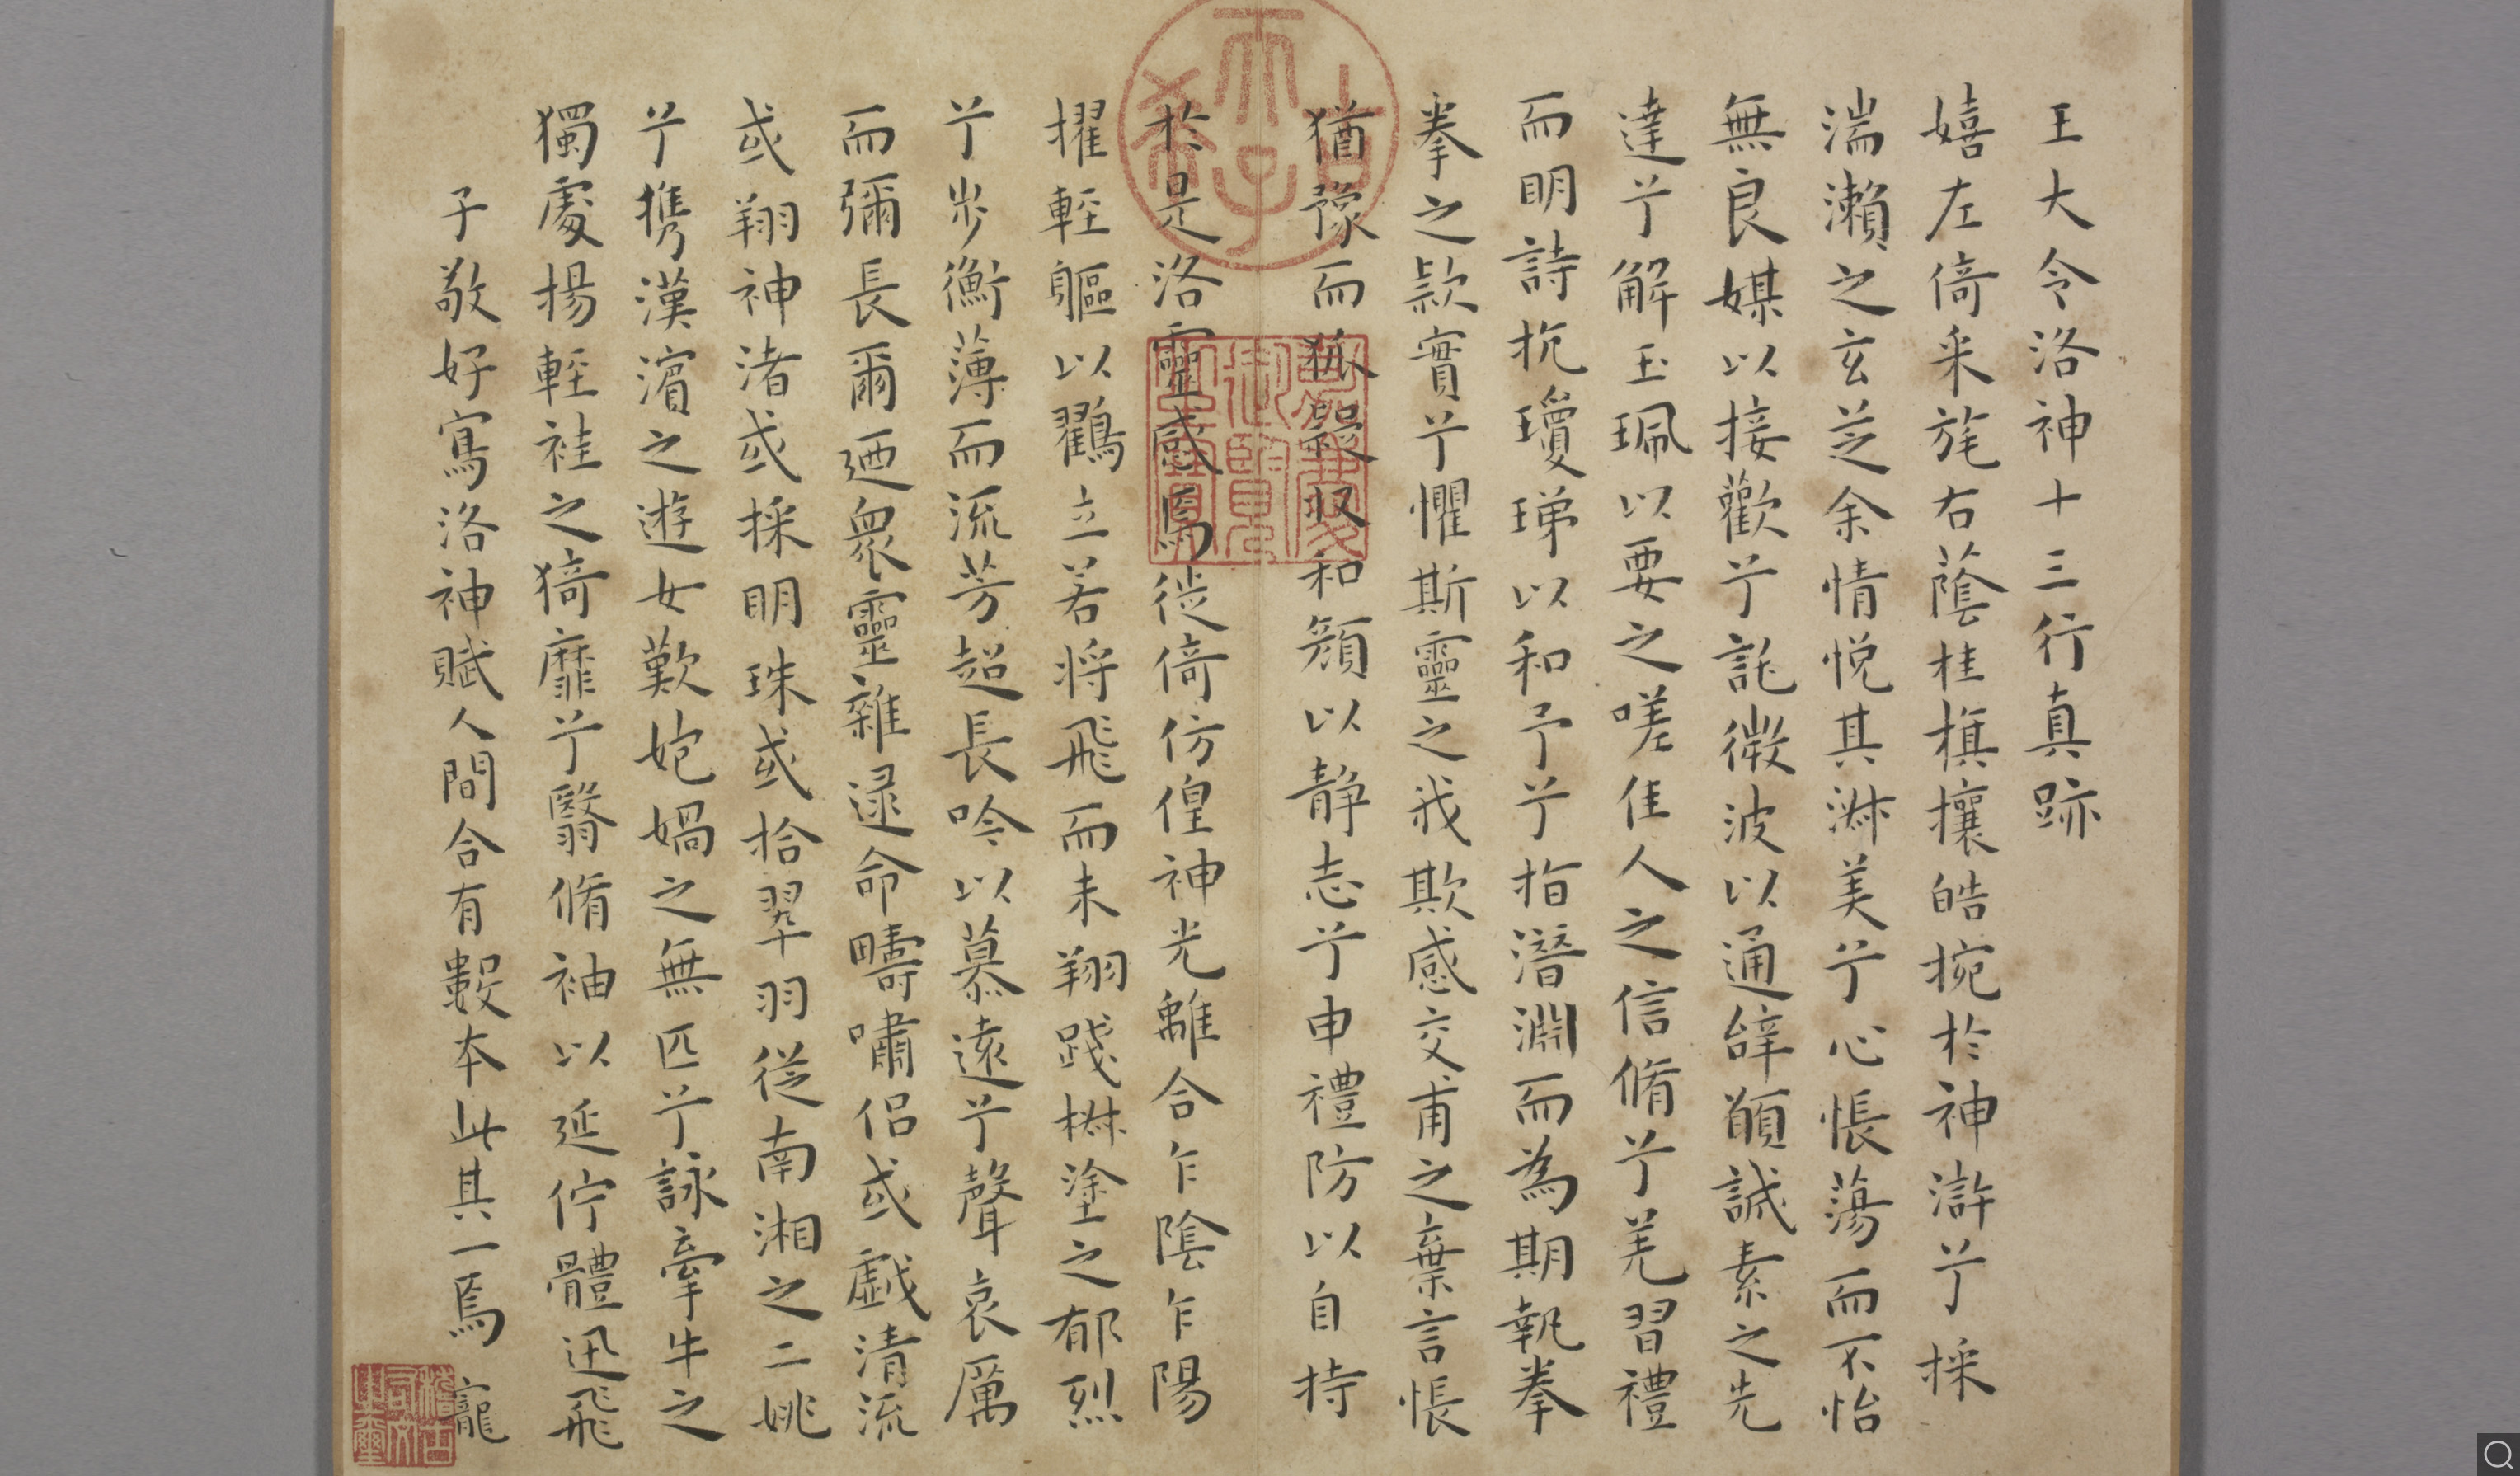 王大令洛神十三行真跡
嬉左倚采旄右蔭桂旗攘皓捥於神滸兮採
湍瀨之玄芝余情悅其淋美兮心悵蕩而不怡
無良媒以接歡兮託微波以通辭願誠素之先
達兮解玉珮以要之嗟佳人之信脩兮羌習禮
而明詩抗瓊珶以和予兮指潛淵而為期執拳
拳之款實兮懼斯靈之我欺感交甫之棄言悵
猶豫而狐疑収和顏以靜志兮申禮防以自持
於是洛靈感焉徙倚仿偟神光離合乍陰乍陽
擢輕軀以鸖立若將飛而未翔踐椒塗之郁烈
兮步衡薄而流芳超長吟以慕遠兮聲哀厲
而彌長爾廼衆靈雜遝命疇嘯侶或戲清流
或翔神渚或採明珠或拾翠羽從南湘之二姚
兮攜漢濱之遊女歎妑媧之無匹兮詠牽牛之
獨處揚輕袿之猗靡兮翳脩袖以延佇體迅飛
子敬好寫洛神賦人間合有數本此其一焉 寵
古希天子
乾隆御覽之寶